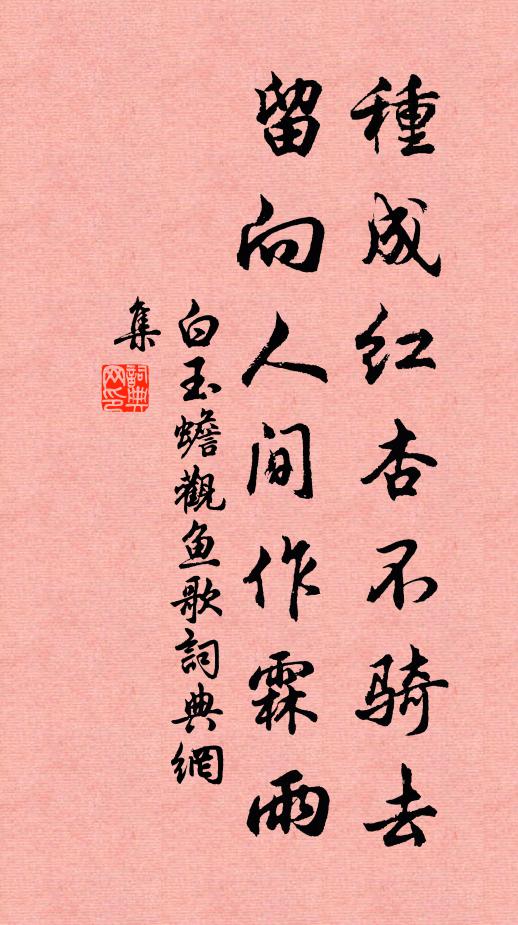 種成红杏不骑去
留向人间作霖雨
白玉蟾觀鱼歌詞典網
集
詞典网印